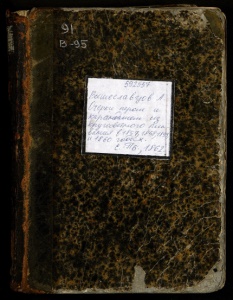 91
В-95
Вышеславцов А.
Очерки пером и
карандашом из
кругосветного пла-
вания в
и 1860 годах
С.Пб., 1862